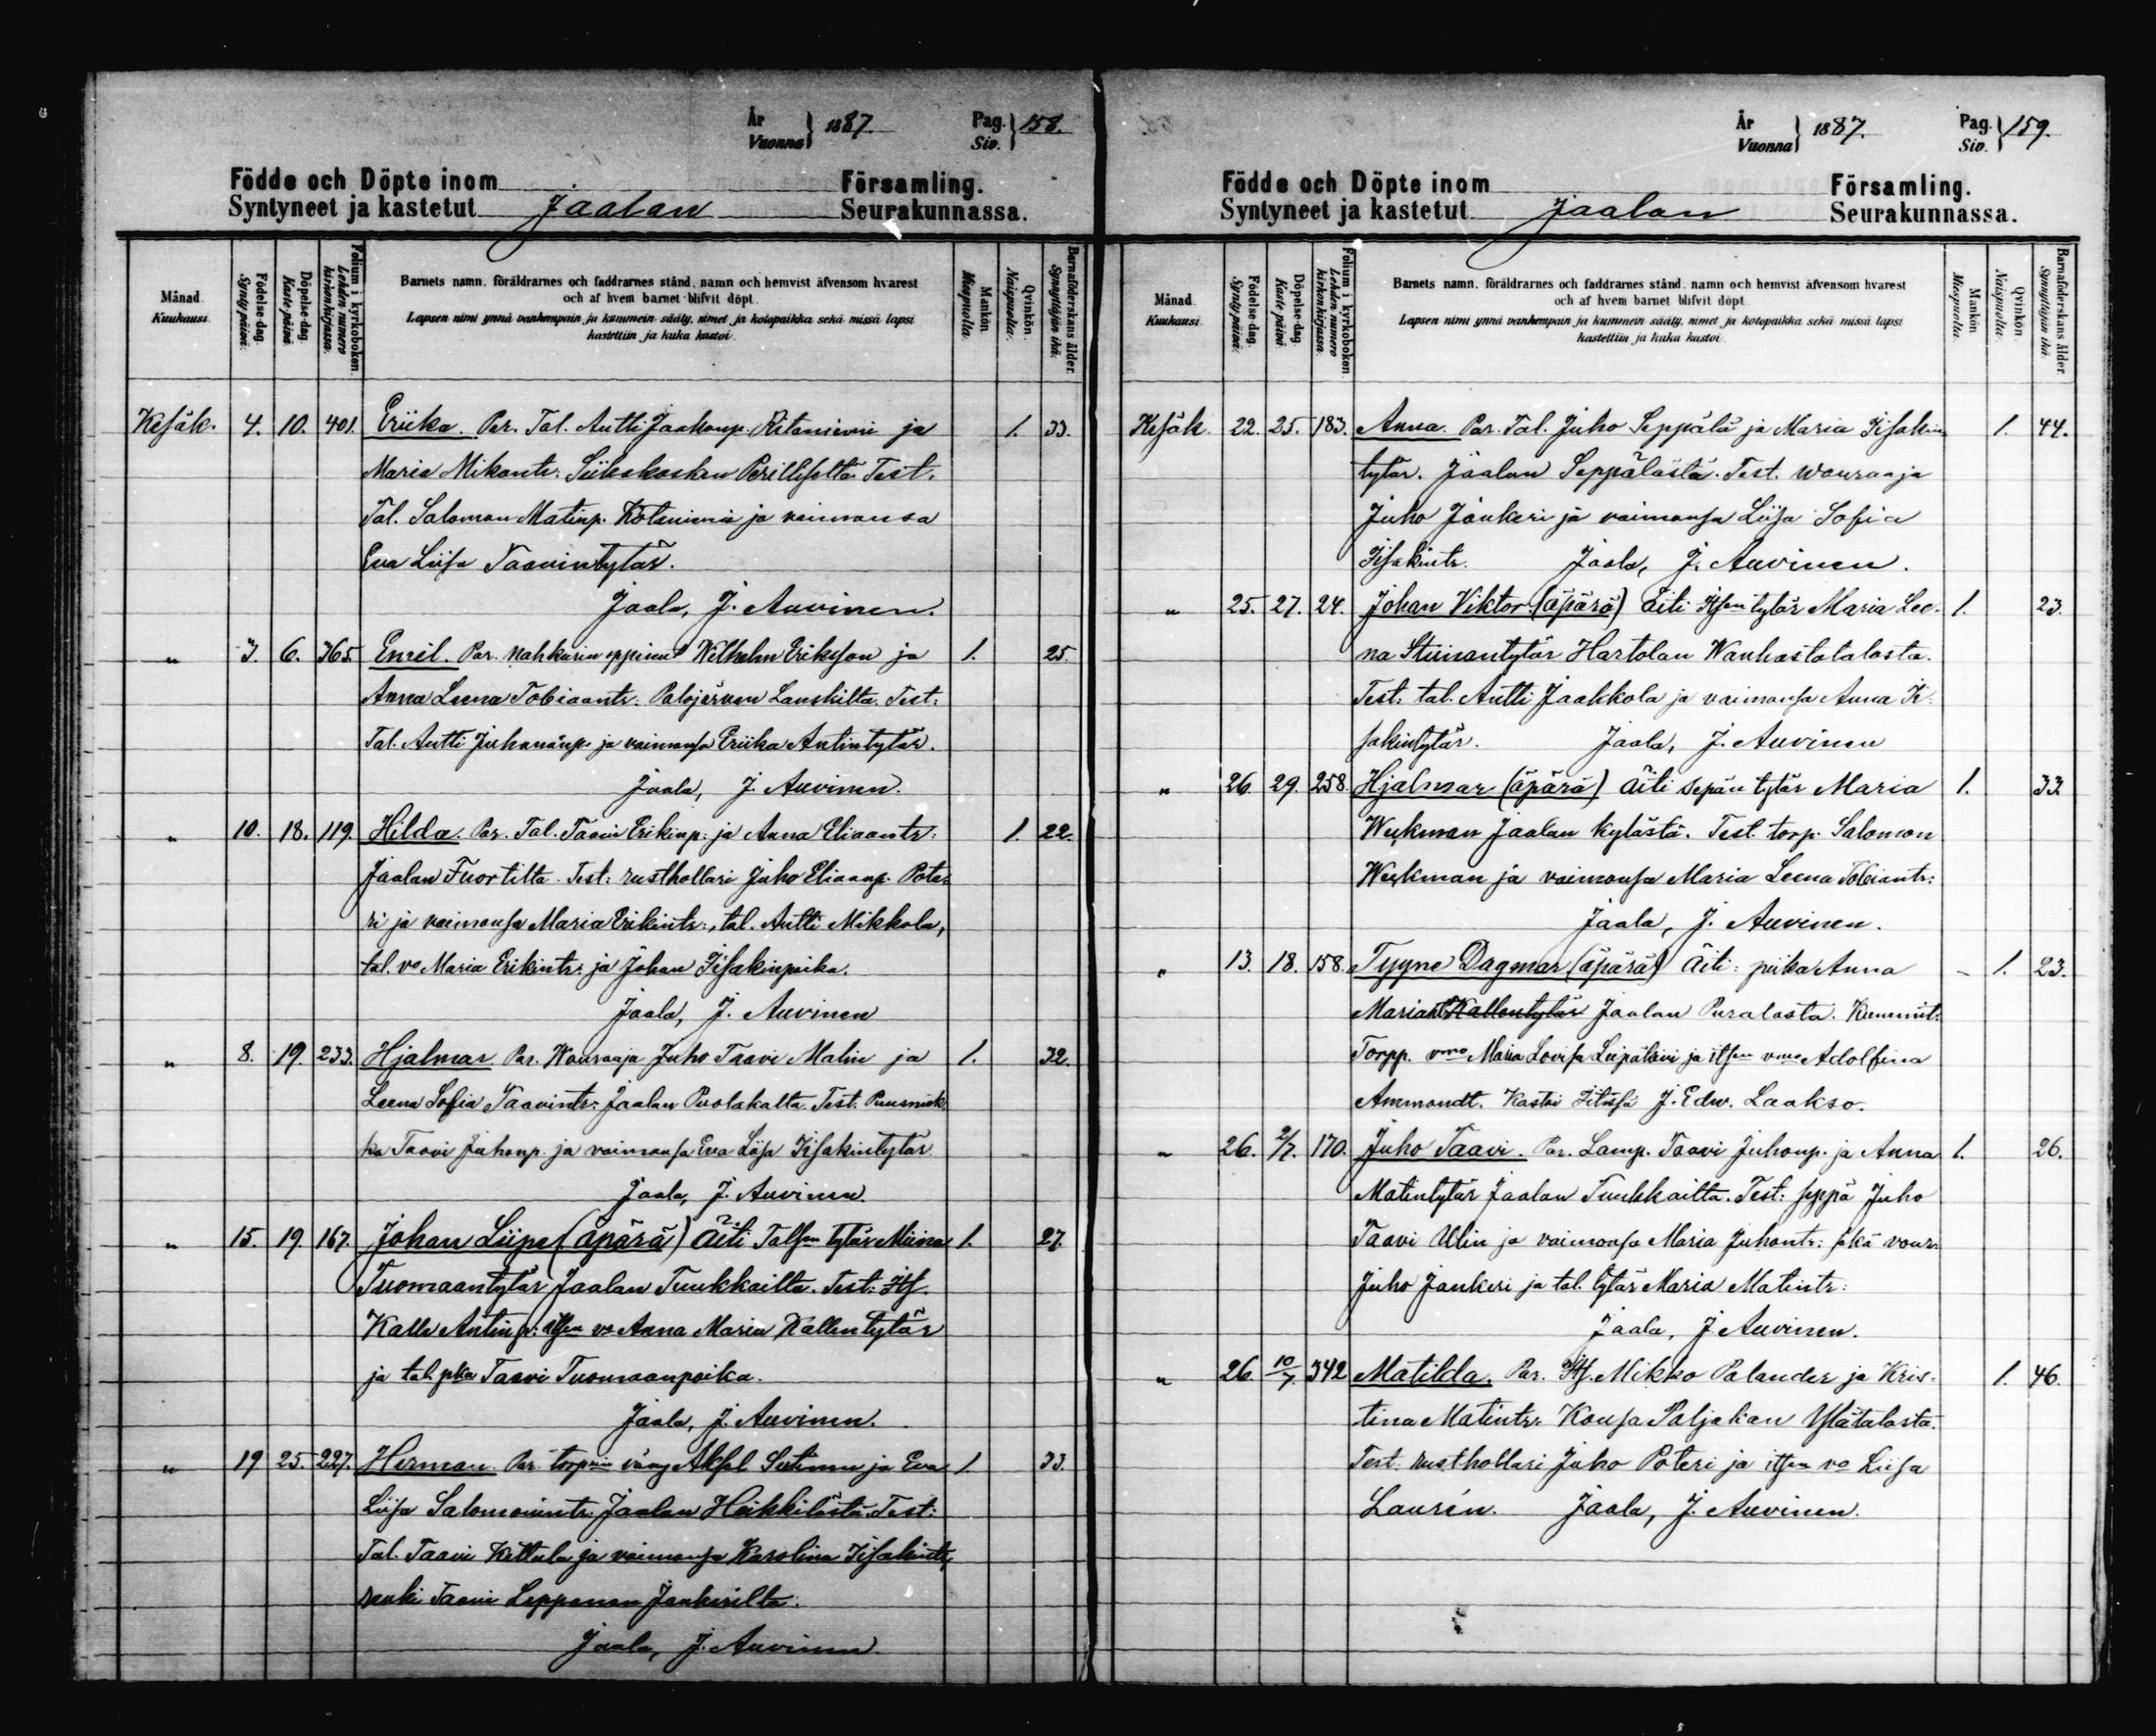 År
Vuonna } 1887.
Pag.
Siv. } 158.
Födde och Döpte inom Församling.
Syntyneet ja kastetut Jaalan Seurakunnassa.
Månad.
Kuukausi.
Födelse-dag.
Synty-päivä.
Döpelse-dag.
Kaste-päivä.
Folium i kyrkoboken.
Lehden numero kirkonkirjassa.
Barnets namn, föräldrarnes och faddrarnes stånd, namn och hemvist äfvensom hvarest
och af hvem barnet blifvit döpt.
Lapsen nimi ynnä vanhempain ja kummein sääty, nimet ja kotopaikka sekä missä lapsi
kastettiin ja kuka kastoi.
Mankön.
Miespuolia.
Qvinkön.
Naispuolia.
Barnaföderskans ålder.
Synnyttäjän ikä.
Kesäk. 4. 10. 401. Eriika. Par. Tal. Antti Jaakonp. ja 1. 33.
Maria Mikonts. Siikakosken Perilliseltä. Test.
Tal. Salomon Matinp. ja vaimonsa
Eva Liisa Taavintytär.
Jaala, J. Auvinen.
" 3. 6. 365. Emil. Par. Nahkurin oppinut Wilhelm Eriksson ja 1. 25.
Anna Leena Tobiaants. Palojärven Lanskilta. Test:
Tal. Antti Juhananp. ja vaimonsa Eriika Antintytär.
Jaala, J. Auvinen.
" 10. 18. 119. Hilda. Par. Tal. Taavi Erikinp. ja Anna Eliaants: 1. 22.
Jaalan Tuortilta. Test: rusthollari Juho Eliaanp. Pote-
ri ja vaimonsa Maria Erikints:, tal. Antti Mikkola,
tal. vo Maria Erikints: ja Johan Iisakinpoika.
Jaala, J. Auvinen
" 8. 19. 233. Hjalmar. Par. Wouraaja Juho Taavi Malin ja 1. 32.
Leena Sofia Taavints: Jaalan Puolakalta. Test. Puusniek-
ka Taavi Juhonp. ja vaimonsa Eva Liisa Iisakintytär
Jaala, J. Auvinen.
" 15. 19. 167. Johan Liipe (äpärä) Äiti Talsen tytär Miina 1. 27.
Tuomaantytär Jaalan Tuukkailta. Test: Its.
Kalle Antinp: itsen vo Anna Maria Kallentytär
ja tal. pka Taavi Tuomaanpoika.
Jaala, J. Auvinen.
" 19 25. 227. Herman. Par. torparin vävy Aksel Sutinen ja Eva 1. 33.
Liisa Salomonints: Jaalan Heikkilästä. Test:
Tal. Taavi Kettula ja vaimonsa Karolina Iisakints,
renki Taavi Lepponen Jankerilta.
Jaala, J. Auvinen
År
Vuonna } 1887.
Pag.
Siv. } 159.
Födde och Döpte inom Församling.
Syntyneet ja kastetut Jaalan Seurakunnassa.
Månad.
Kuukausi.
Födelse-dag.
Synty-päivä.
Döpelse-dag.
Kaste-päivä.
Folium i kyrkoboken.
Lehden numero kirkonkirjassa.
Barnets namn, föräldrarnes och faddrarnes stånd, namn och hemvist äfvensom hvarest
och af hvem barnet blifvit döpt.
Lapsen nimi ynnä vanhempain ja kummein sääty, nimet ja kotopaikka sekä missä lapsi
kastettiin ja kuka kastoi.
Mankön.
Miespuolia.
Qvinkön.
Naispuolia.
Barnaföderskans ålder.
Synnyttäjän ikä.
Kesäk. 22. 25. 183. Anna. Par. Tal. Juho Seppälä ja Maria Iisakin 1. 44.
tytär. Jaalan Seppälästä. Test. wouraaja
Juho Jankeri ja vaimonsa Liisa Sofia
Iisakints. Jaala, J. Auvinen.
" 25. 27. 24. Johan Viktor (äpärä) Äiti Itsen tytär Maria Lee- 1. 23.
na Stunantytär Hartolan Wanhastatalosta.
Test: tal. Antti Jaakkola ja vaimonsa Anna Ii-
sakintytär. Jaala, J. Auvinen
" 26. 29. 258. Hjalmar (äpärä) Äiti sepän tytär Maria 1. 33.
Weckman Jaalan kylästä. Test. torp. Salomon
Weckman ja vaimonsa Maria Leena Tobiants:
Jaala, J. Auvinen.
" 13. 18. 158. Tyyne Dagmar (äpärä) Äiti: piika Anna - 1. 23.
Maria Kallentytär Jaalan Puralasta. Kummit:
Torpp. vmo Maria Lovisa Leipälävi ja itsen vmo Adolfina
Ammondt. Kastoi Iitissä J. Edw. Laakso.
" 26. 2/7. 170. Juho Taavi. Par. Lamp. Taavi Juhonp. ja Anna 1. 26.
Matintytär Jaalan Tuukkailta. Test: seppä Juho
Taavi Ulin ja vaimonsa Maria Juhonts: sekä vour.
Juho Jankeri ja tal. tytär Maria Matints:
Jaala, J. Auvinen.
" 26. 10/7. 342 Matilda. Par. Its. Mikko Palander ja Kris- 1. 46.
tina Matints. Kausa Paljakan Ylätalosta.
Test. rusthollari Juho Poteri ja itsen vo Liisa
Laurén. Jaala, J. Auvinen.